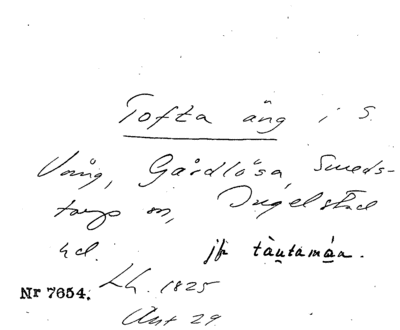 Tofta äng i S.
Vång, Gårdlösa, Smeds-
torps sn, Ingelstad
hd. jfr tàutamán.
Nr 7654. Lh. 1825
Akt 29